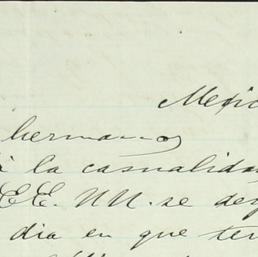 Mexic
hermano
à la casualida
EE. UU. se des
dia en que ten